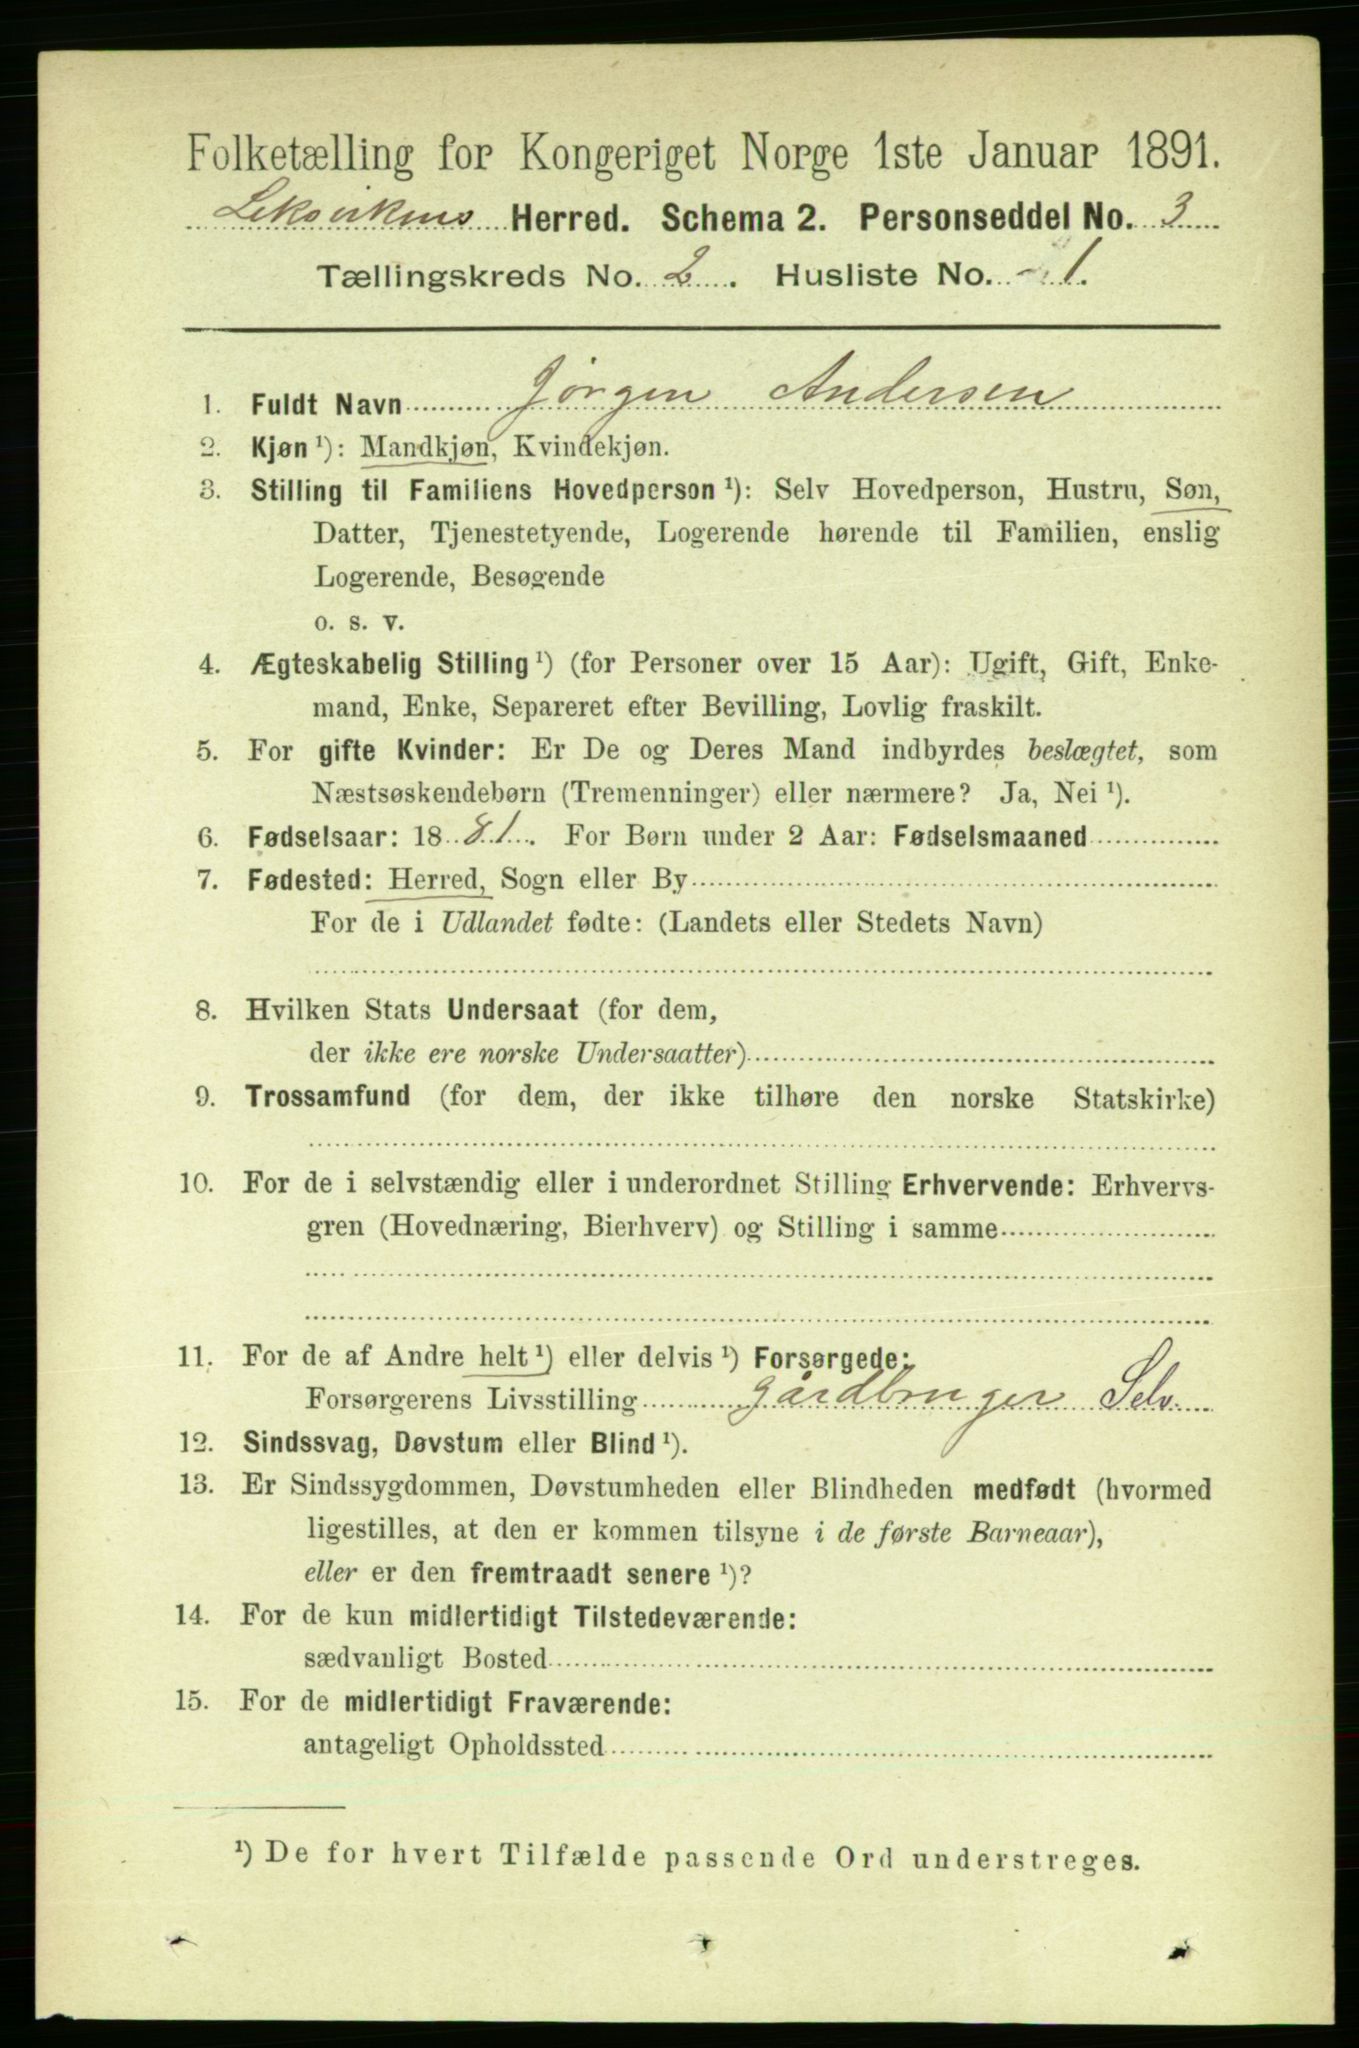 Folketælling for Kongeriget Norge 1ste Januar 1891.
Leksvikens Herred. Schema 2. Personseddel No. 3
Tællingskreds No. 2. Husliste No. 1.
1. Fuldt Navn Jørgen Andersen
2. Kjøn ¹): Mandkjøn, Kvindekjøn.
3. Stilling til Familiens Hovedperson ¹): Selv Hovedperson, Hustru, Søn,
Datter, Tjenestetyende, Logerende hørende til Familien, enslig
Logerende, Besøgende
o. s. v.
4. Ægteskabelig Stilling ¹) (for Personer over 15 Aar): Ugift, Gift, Enke-
mand, Enke, Separeret efter Bevilling, Lovlig fraskilt.
5. For gifte Kvinder: Er De og Deres Mand indbyrdes beslægtet, som
Næstsøskendebørn (Tremenninger) eller nærmere? Ja, Nei ¹).
6. Fødselsaar: 1881. For Børn under 2 Aar: Fødselsmaaned
7. Fødested: Herred, Sogn eller By
For de i Udlandet fødte: (Landets eller Stedets Navn)
8. Hvilken Stats Undersaat (for dem,
der ikke ere norske Undersaatter)
9. Trossamfund (for dem, der ikke tilhøre den norske Statskirke)
10. For de i selvstændig eller i underordnet Stilling Erhvervende: Erhvervs-
gren (Hovednæring, Bierhverv) og Stilling i samme
11. For de af Andre helt ¹) eller delvis ¹) Forsørgede:
Forsørgerens Livsstilling gårdbruger Selv.
12. Sindssvag, Døvstum eller Blind ¹).
13. Er Sindssygdommen, Døvstumheden eller Blindheden medfødt (hvormed
ligestilles, at den er kommen tilsyne i de første Barneaar),
eller er den fremtraadt senere ¹)?
14. For de kun midlertidigt Tilstedeværende:
sædvanligt Bosted
15. For de midlertidigt Fraværende:
antageligt Opholdssted
¹) De for hvert Tilfælde passende Ord understreges.